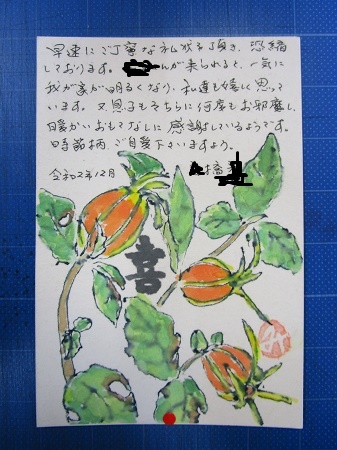 早速にご丁寧な礼状を頂き、恐縮
しております。 んが来られると、一気に
我が家が明るくなり、私達も嬉しく思って
います。又息子もそちらに何度もお邪魔し、
暖かいおもてなしに感謝しているようです。
時節柄、ご自愛下さいますよう。
令和2年12月 橋
喜